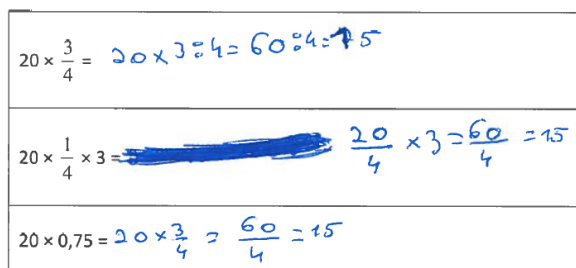 20 × 3/4 = 20 × 3 : 4 = 60 : 4 = 15
20 × 1/4 × 3 = 20/4 × 3 = 60/4 = 15
20 × 0,75 = 20 × 3/4 = 60/4 = 15